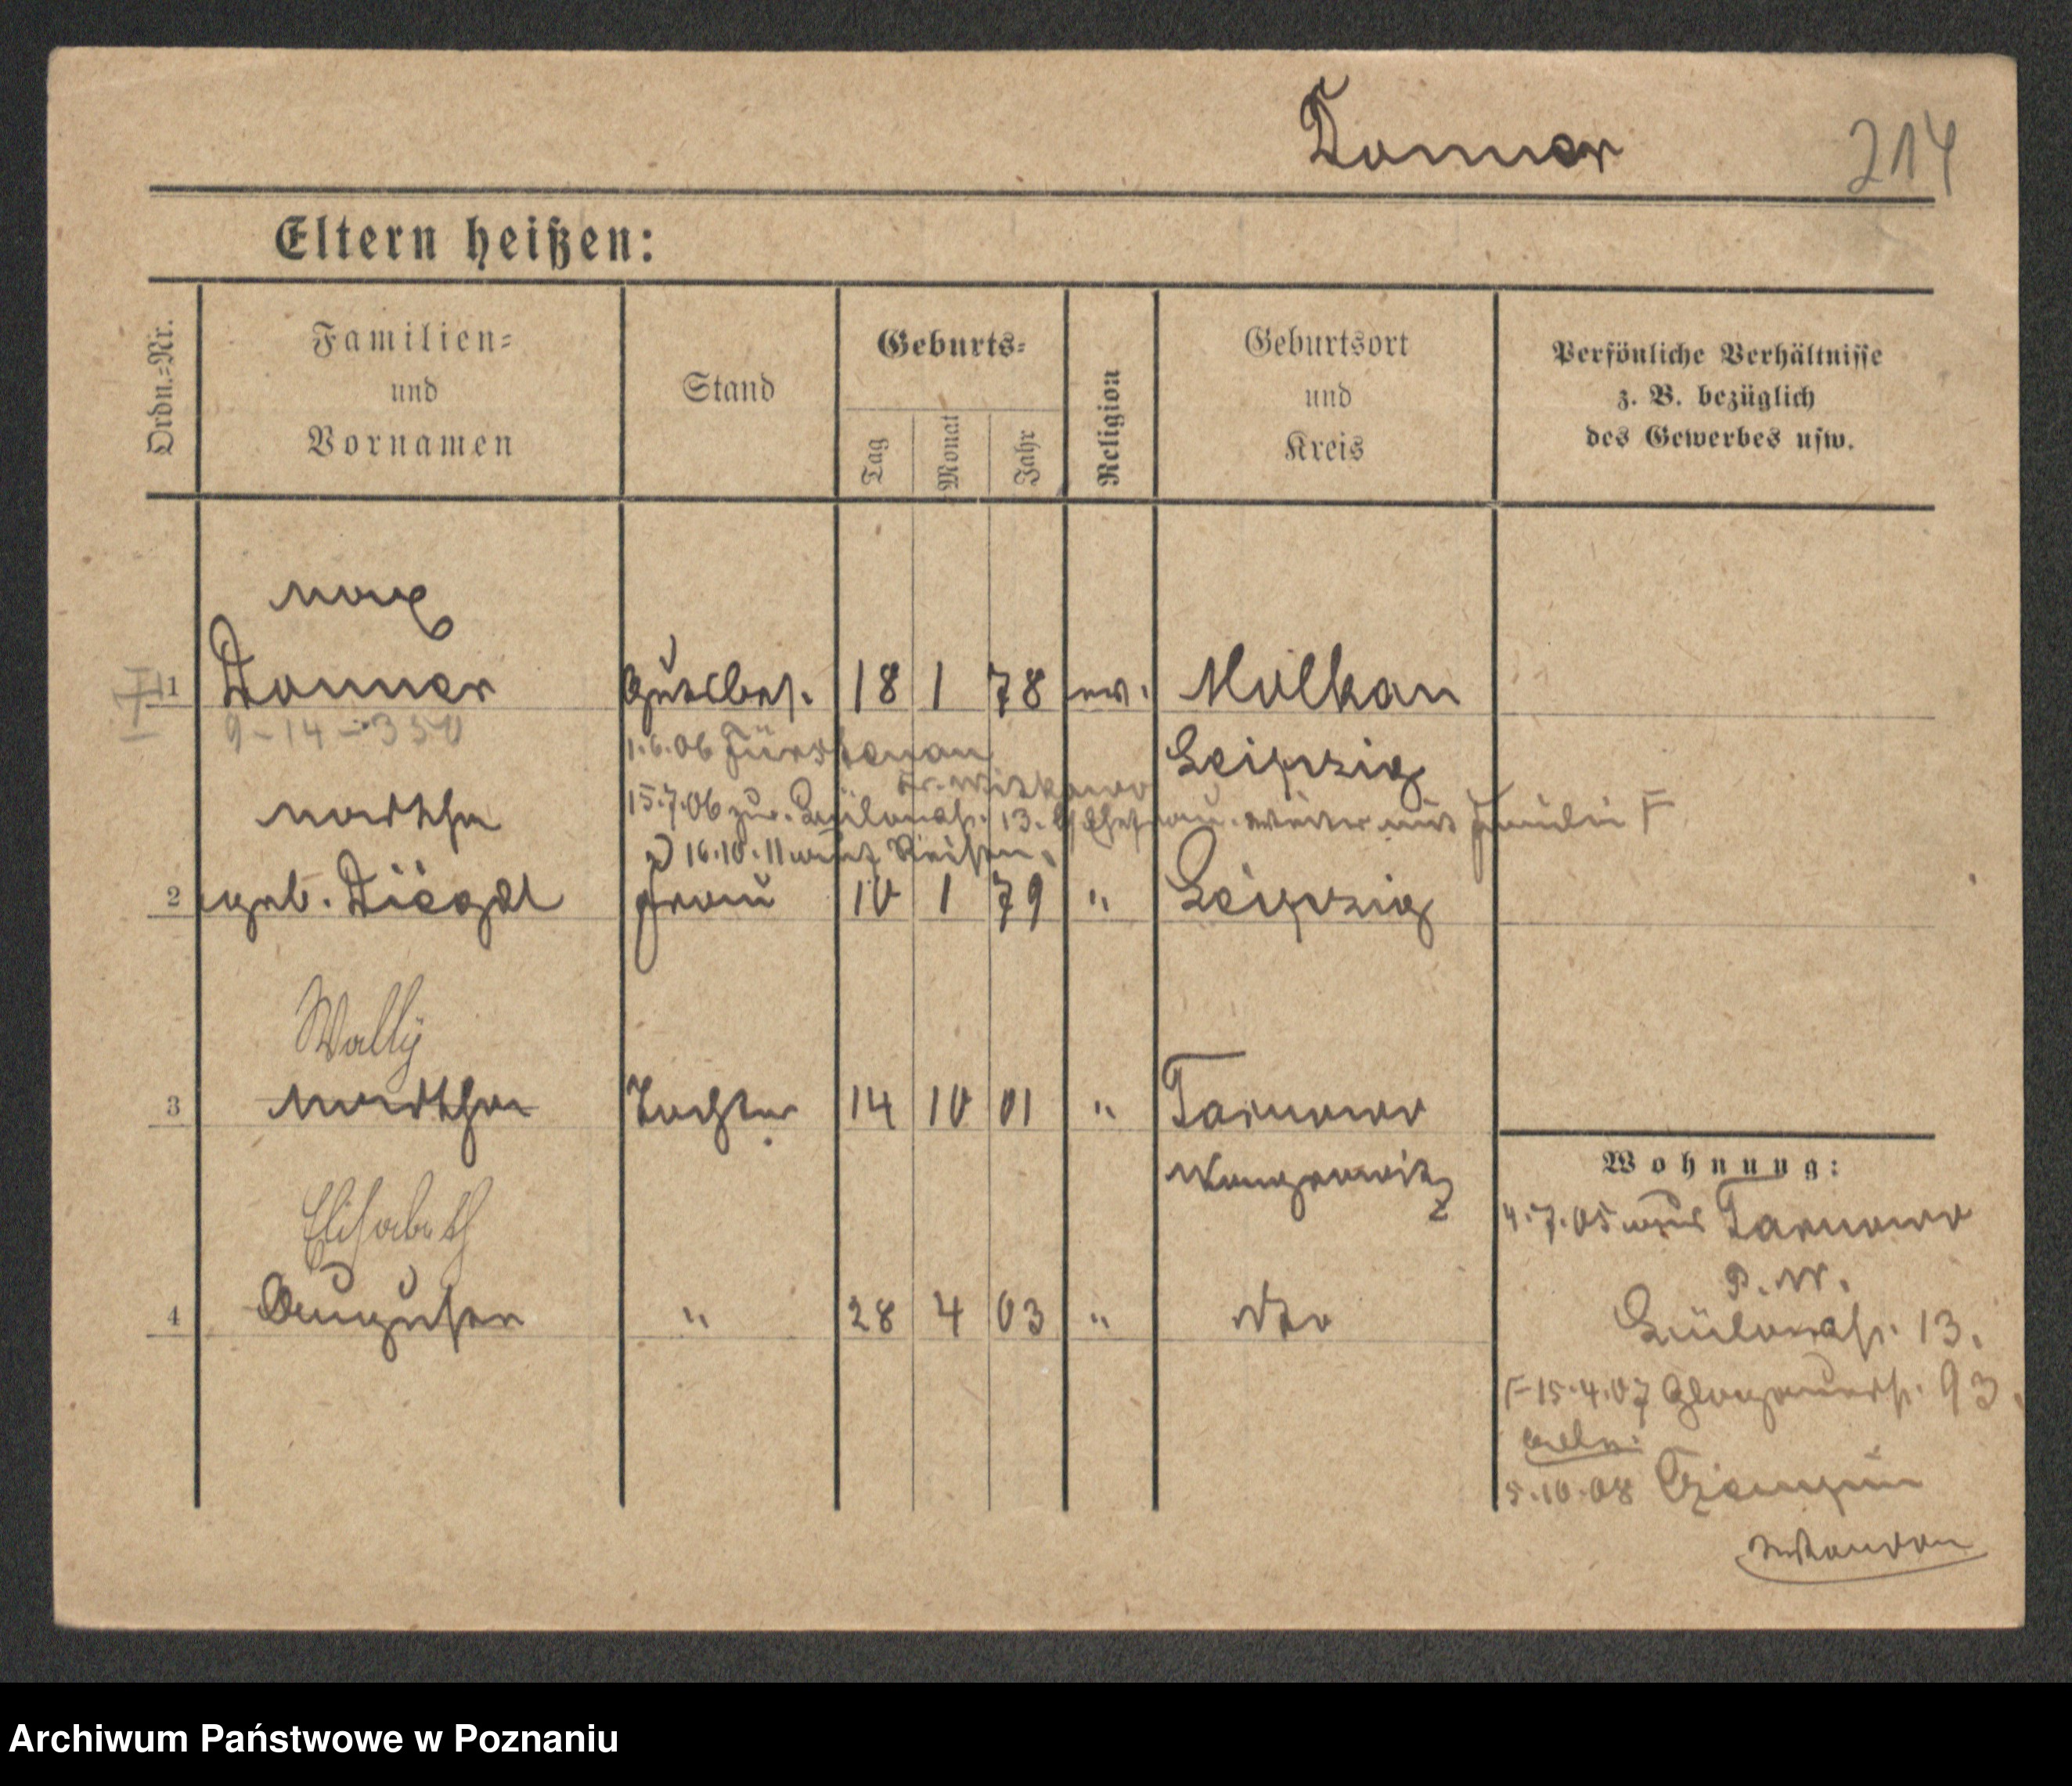 Donner 214
Eltern heißen:
Ordn.-Nr.
Familien-
und
Vornamen
Stand
Geburts-
Tag
Monat
Jahr
Religion
Geburtsort
und
Kreis
Persönliche Verhältnisse
z. B. bezüglich
des Gewerbes usw.
Max
1 Donner Gutsbes. 18 1 78 ev. Mölkau
9-14-350
1.6.06 Fürstenau Leipzig
Kr. Witkowo
15.7.06 zur. Bülowstr. 13.
Martha
16.10.11 Reisen.
2 geb. Diegel Frau 10 1 79 " Leipzig
Wally
3 Martha Tochter 14 10 01 " Tarnowo
Wongrowitz
Elisabeth
4 Auguste " 28 4 03 " dto
Wohnung:
4.7.05 aus Tarnowo
P. W.
Bülowstr. 13.
F 15.4.07 Glogauerstr. 93.
5.10.08